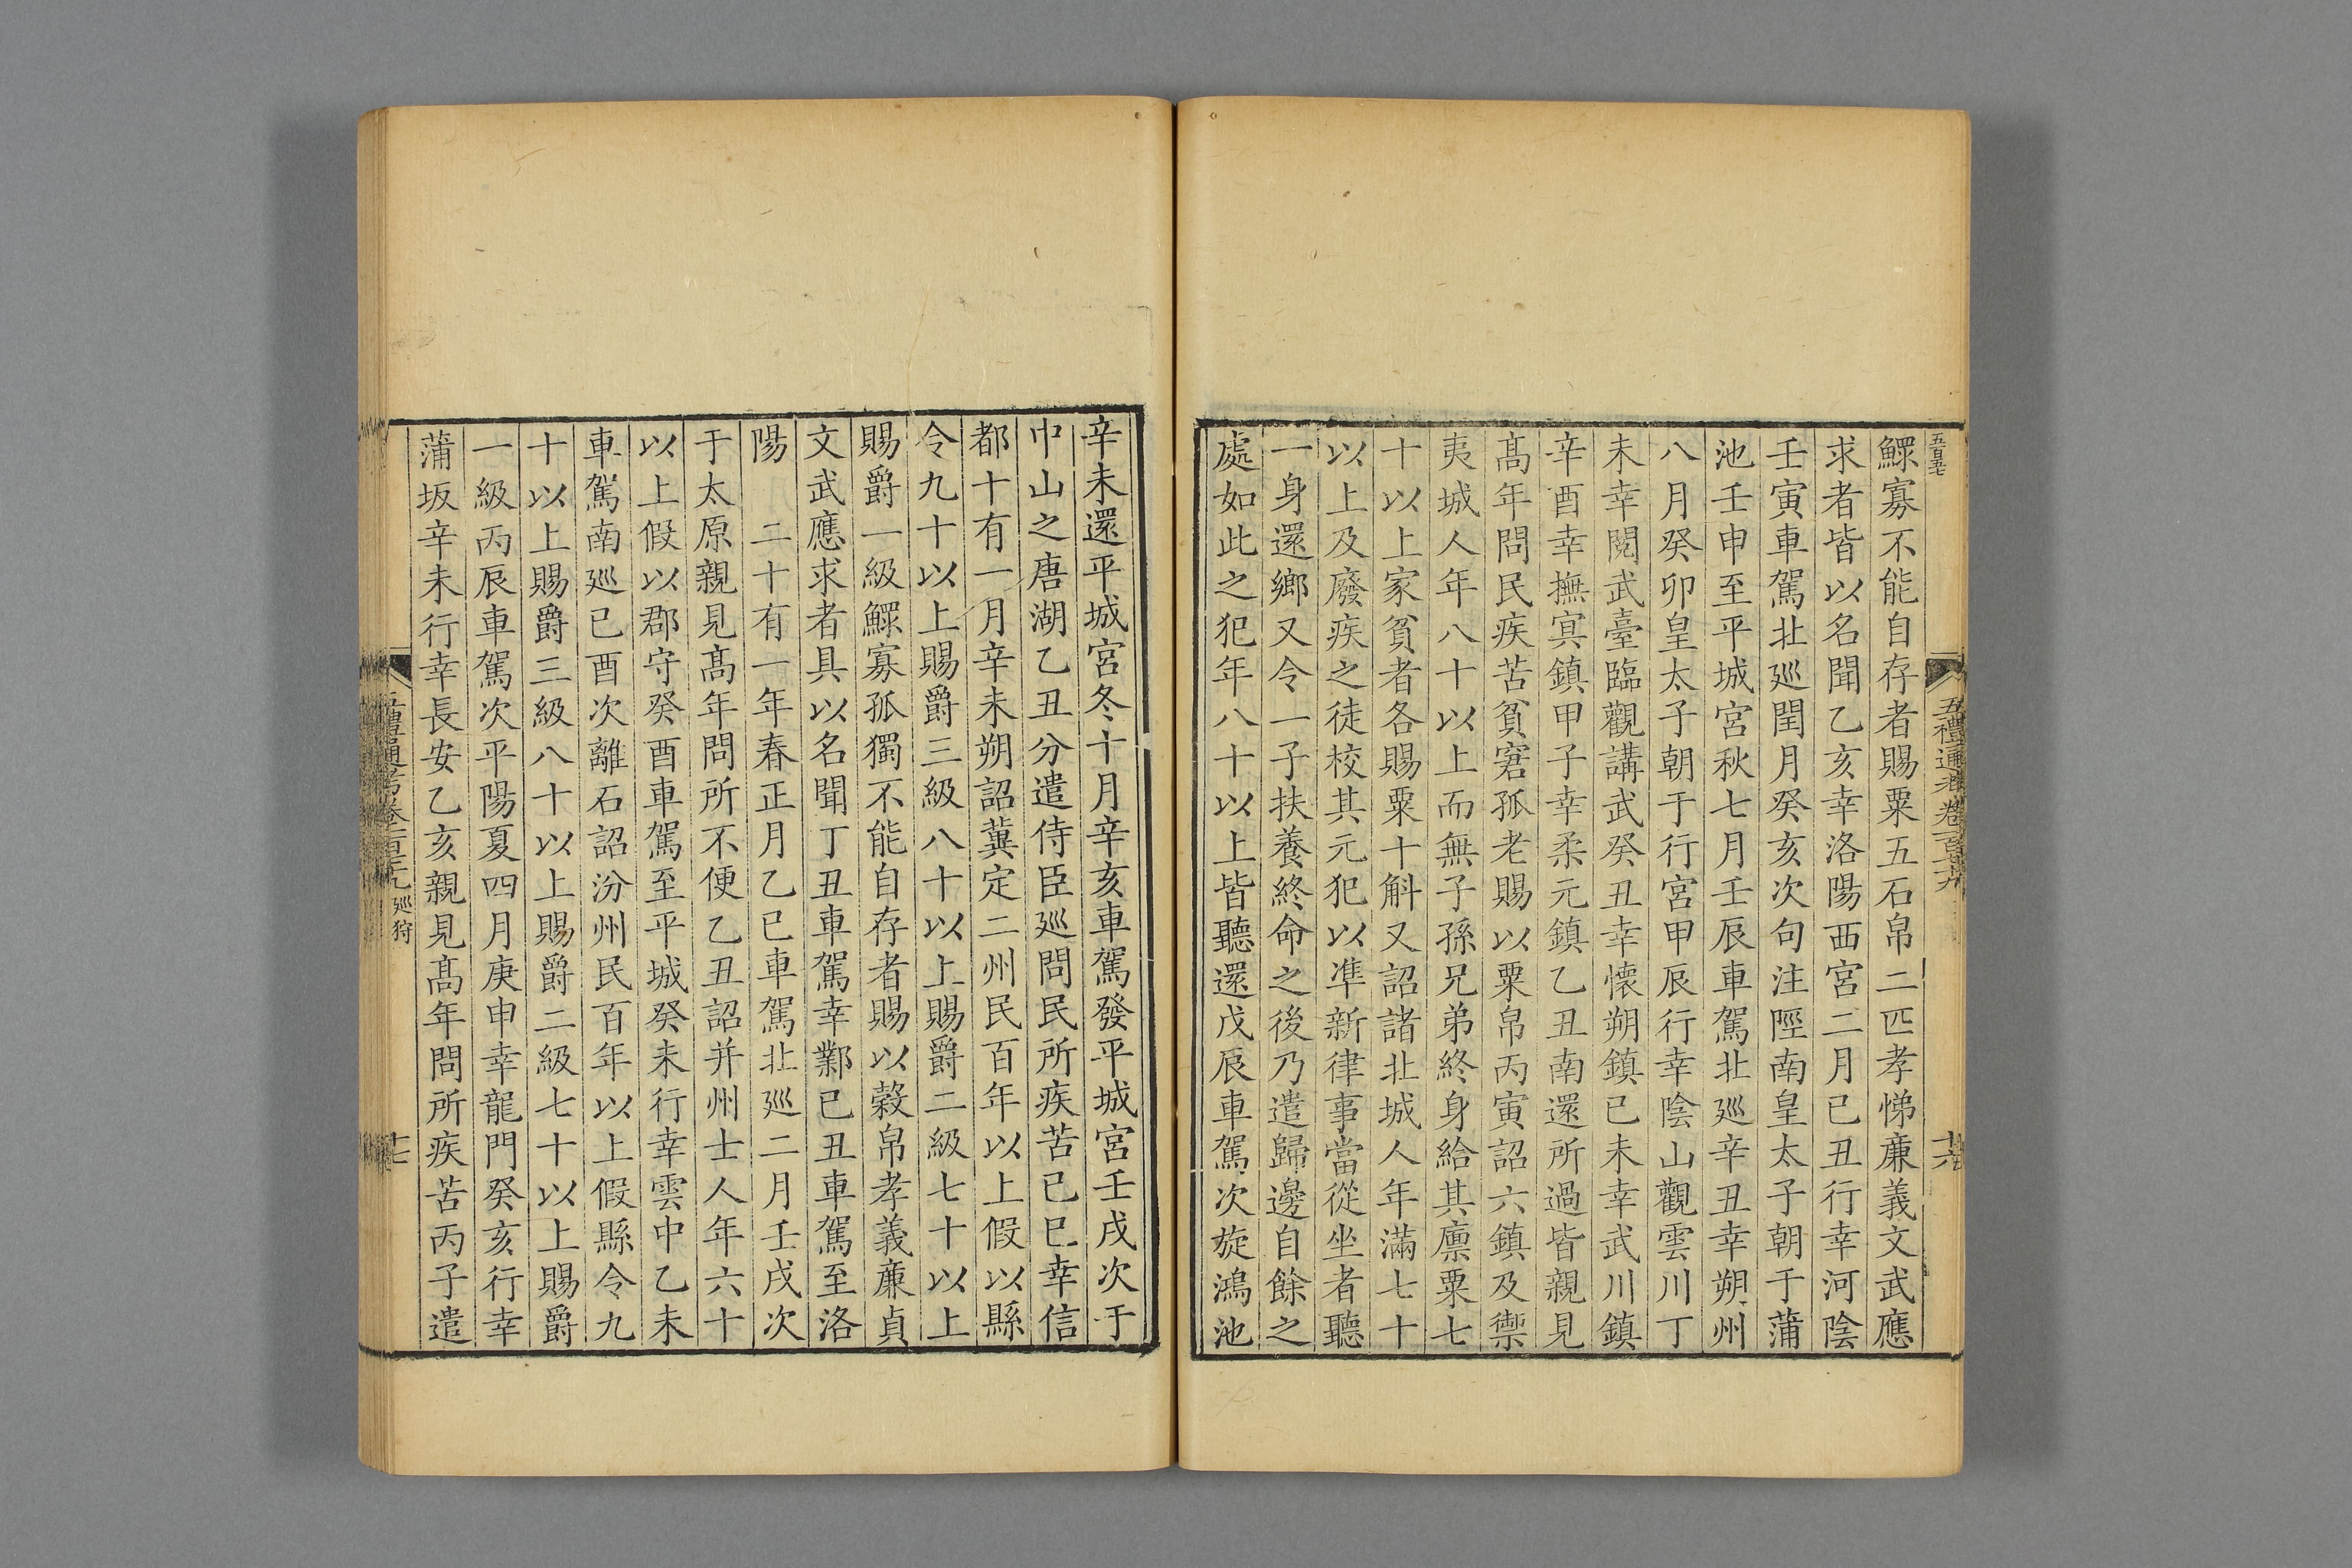 五百五七
五禮通考卷一百七十九
十六
鰥寡不能自存者賜粟五石帛二匹孝悌廉義文武應
求者皆以名聞乙亥幸洛陽西宮二月己丑行幸河陰
壬寅車駕北廵閏月癸亥次句注陘南皇太子朝于蒲
池壬申至平城宮秋七月壬辰車駕北廵辛丑幸朔州
八月癸卯皇太子朝于行宮甲辰行幸陰山觀雲川丁
未幸閱武臺臨觀講武癸丑幸懷朔鎮已未幸武川鎮
辛酉幸撫㝠鎮甲子幸柔元鎮乙丑南還所過皆親見
髙年問民疾苦貧窘孤老賜以粟帛丙寅詔六鎮及禦
夷城人年八十以上而無子孫兄弟終身給其廪粟七
十以上家貧者各賜粟十斛又詔諸北城人年滿七十
以上及廢疾之徒校其元犯以準新律事當從坐者聽
一身還鄉又令一子扶養終命之後乃遣歸邊自餘之
處如此之犯年八十以上皆聽還戊辰車駕次旋鴻池
辛未還平城宮冬十月辛亥車駕發平城宮壬戌次于
中山之唐湖乙丑分遣侍臣廵問民所疾苦已巳幸信
都十有一月辛未朔詔冀定二州民百年以上假以縣
令九十以上賜爵三級八十以上賜爵二級七十以上
賜爵一級鰥寡孤獨不能自存者賜以穀帛孝義廉貞
文武應求者具以名聞丁丑車駕幸鄴已丑車駕至洛
陽　二十有一年春正月乙巳車駕北廵二月壬戌次
于太原親見髙年問所不便乙丑詔并州士人年六十
以上假以郡守癸酉車駕至平城癸未行幸雲中乙未
車駕南廵已酉次離石詔汾州民百年以上假縣令九
十以上賜爵三級八十以上賜爵二級七十以上賜爵
一級丙辰車駕次平陽夏四月庚申幸龍門癸亥行幸
蒲坂辛未行幸長安乙亥親見髙年問所疾苦丙子遣
五禮通考卷一百七十九 廵狩
十七